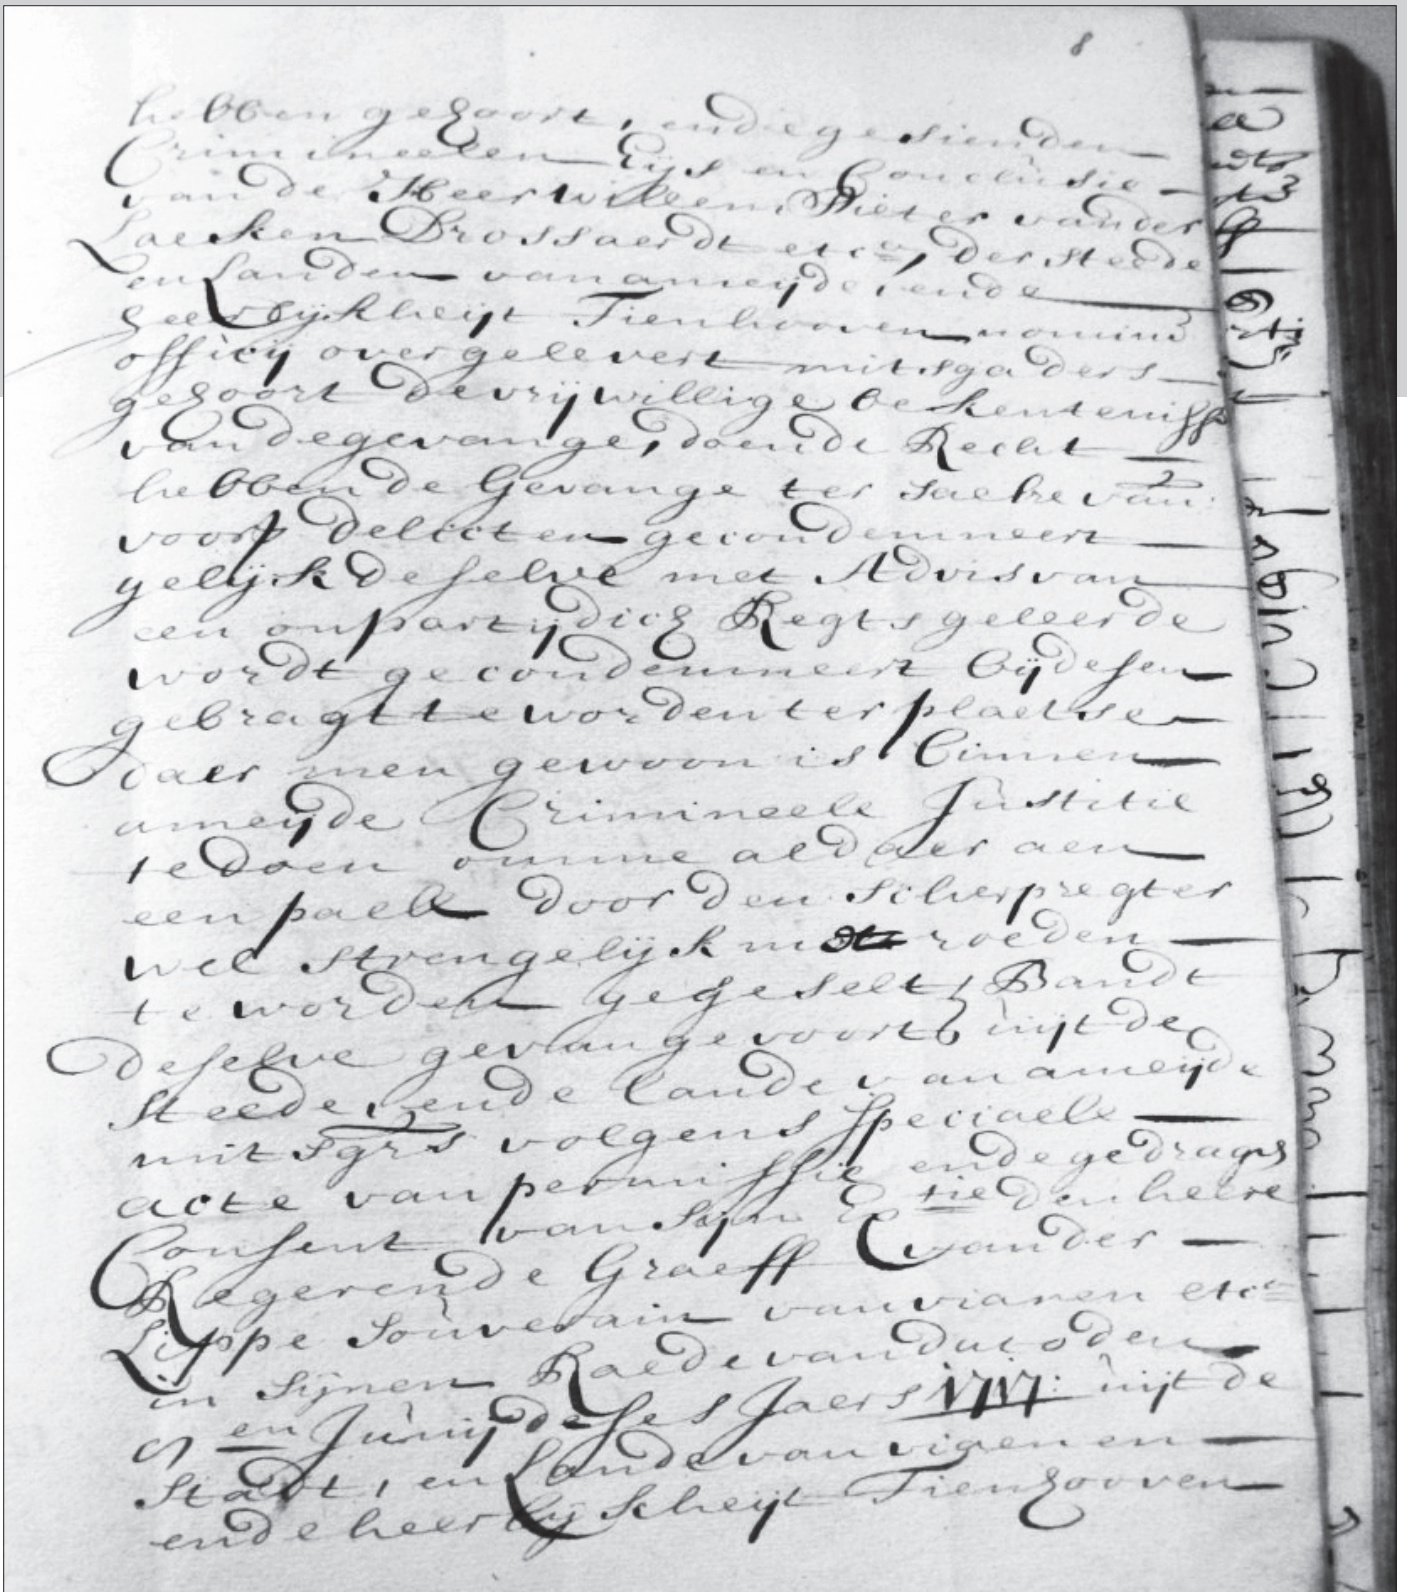 8
hebben gehoort, ende gesien den
Crimineelen Eijs en Conclusie
van de Heer Willem Pieter vander
Laeken Drossaerdt etca, der Stede
en Landen van ameijde, ende
heerlijkheijt Tienhooven nomine
officij overgelevert mitsgaders
gehoort de vrijwillige bekentenisse
van de gevange, doende Recht
hebben de Gevange ter saeke van
voors delicten gecondemneert
gelijk deselve met Advis van
een onpartijdich Regtsgeleerde
wordt gecondemneert bij desen
gebragt te worden ter plaetse
daer men gewoon is binnen
ameijde Crimineele Justitie
te doen omme aldaer aen
een paell door den scherpregter
wel strengelijk met roeden
te worden gegeselt, Bandt
deselve gevange voorts uijt de
Steede, ende lande van ameijde
mitsgrs volgens speciaele
acte van permissie ende gedragen
Consent van Sijn Extie den heere
Regerende Graeff vander
Lippe Souverain van vianen etca
in Sijnen Raede van dato den
9en Junij deses Jaers 1717: uijt de
Stadt, en Lande van vianen en
ende heerlijkheijt Tienhooven